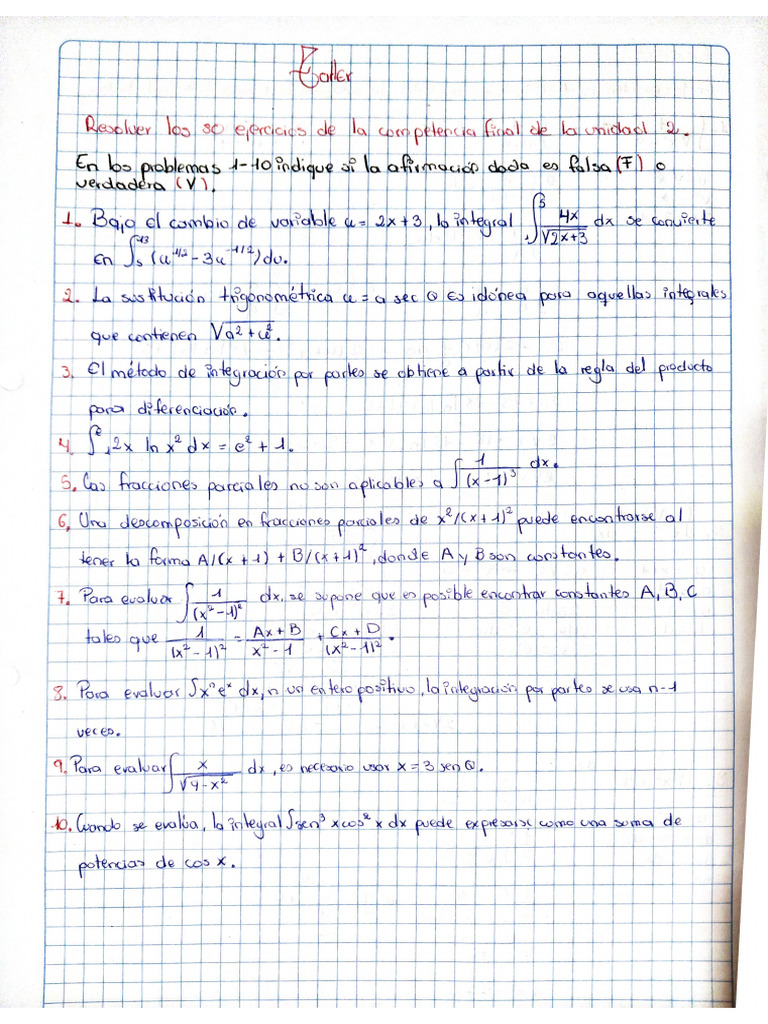 Taller
Resolver los 50 ejercicios de la competencia final de la unidad 2.
En los problemas 1-10 indique si la afirmación dada es falsa (F) o
verdadera (V).
1. Bajo el cambio de variable u = 2x+3, la integral ∫₁⁵ 4x/√(2x+3) dx se convierte
en ∫₅¹³ (u^(1/2) - 3u^(-1/2)) du.
2. La sustitución trigonométrica u = a sec θ es idónea para aquellas integrales
que contienen √(a² + u²).
3. El método de integración por partes se obtiene a partir de la regla del producto
para diferenciación.
4. ∫₁ᵉ 2x ln x² dx = e² + 1.
5. Las fracciones parciales no son aplicables a ∫ 1/(x-1)³ dx.
6. Una descomposición en fracciones parciales de x²/(x+1)² puede encontrarse al
tener la forma A/(x+1) + B/(x+1)², donde A y B son constantes.
7. Para evaluar ∫ 1/(x²-1)² dx, se supone que es posible encontrar constantes A, B, C
tales que 1/(x²-1)² = (Ax+B)/(x²-1) + (Cx+D)/(x²-1)².
8. Para evaluar ∫xⁿeˣ dx, n un entero positivo, la integración por partes se usa n-1
veces.
9. Para evaluar ∫ x/√(9-x²) dx, es necesario usar x = 3 sen θ.
10. Cuando se evalúa, la integral ∫sen³ x cos² x dx puede expresarse como una suma de
potencias de cos x.